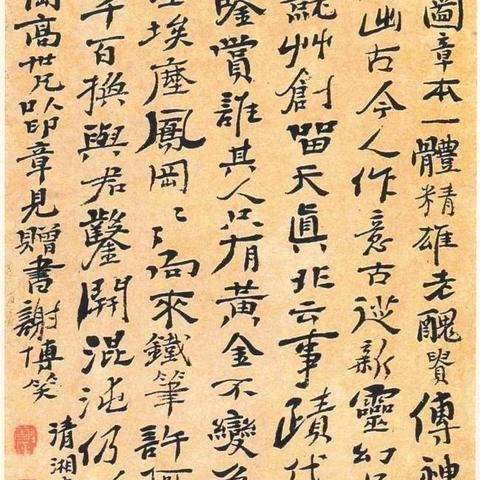 圖章本一體精雄老醜貴傳神
出古今人作意古從新靈幻
就艸創留天真非云事蹟代
鑒賞誰其人只有黃金不變
埃塵鳳岡〻〻向來鐵筆許何
千百撰與君鑿開混沌仍
岡高世兄以印章見贈書謝博笑
清湘